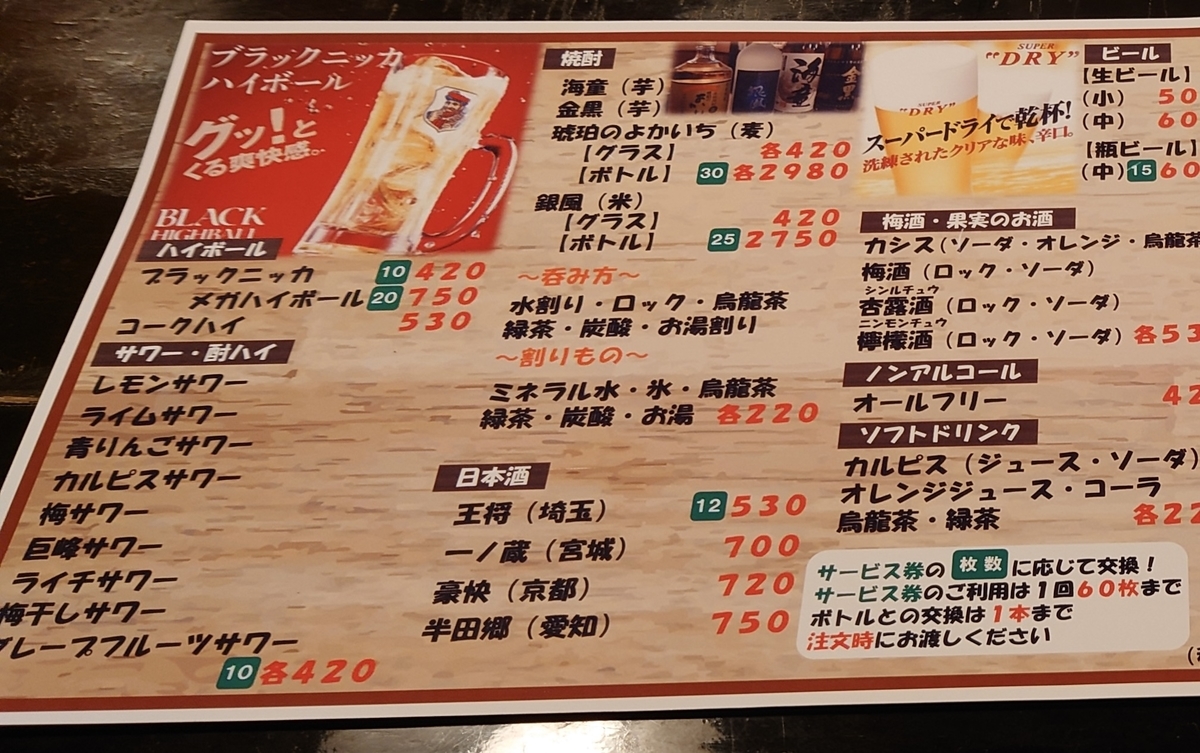 ブラックニッカ
ハイボール
グッ!と
くる爽快感。
BLACK
HIGHBALL
ハイボール
ブラックニッカ 10 420
メガハイボール 20 750
コークハイ 530
サワー・酎ハイ
レモンサワー
ライムサワー
青りんごサワー
カルピスサワー
梅サワー
巨峰サワー
ライチサワー
梅干しサワー
グレープフルーツサワー
10 各420
焼酎
海童（芋）
金黒（芋）
琥珀のよかいち（麦）
【グラス】 各420
【ボトル】 30 各2980
銀風（米）
【グラス】 420
【ボトル】 25 2750
～呑み方～
水割り・ロック・烏龍茶
緑茶・炭酸・お湯割り
～割りもの～
ミネラル水・氷・烏龍茶
緑茶・炭酸・お湯 各220
日本酒
王将（埼玉） 12 530
一ノ蔵（宮城） 700
豪快（京都） 720
半田郷（愛知） 750
海童
SUPER
"DRY"
SUPER
"DRY"
スーパードライで乾杯!
洗練されたクリアな味、辛口。
ビール
【生ビール】
（小） 50
（中） 60
【瓶ビール】
（中） 15 60
梅酒・果実のお酒
カシス（ソーダ・オレンジ・烏龍茶
梅酒（ロック・ソーダ）
シンルチュウ
杏露酒（ロック・ソーダ）
ニンモンチュウ
檸檬酒（ロック・ソーダ） 各53
ノンアルコール
オールフリー 42
ソフトドリンク
カルピス（ジュース・ソーダ）
オレンジジュース・コーラ
烏龍茶・緑茶 各22
サービス券の 枚数 に応じて交換！
サービス券のご利用は1回60枚まで
ボトルとの交換は1本まで
注文時にお渡しください